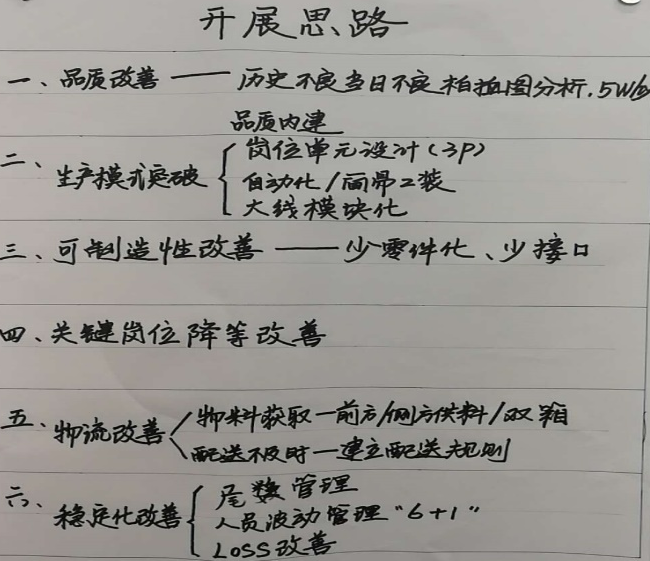 开展思路
一、品质改善 —— 历史不良当日不良柏拉图分析.5W/
品质内建
二、生产模式突破
岗位单元设计(3P)
自动化/而帮工装
大线模块化
三、可制造性改善 —— 少零件化、少接口
四、关键岗位降等改善
五、物流改善
物料获取—前方/侧方供料/双箱
配送不及时—建立配送规则
六、稳定化改善
尾数管理
人员波动管理"6+1"
LOSS改善